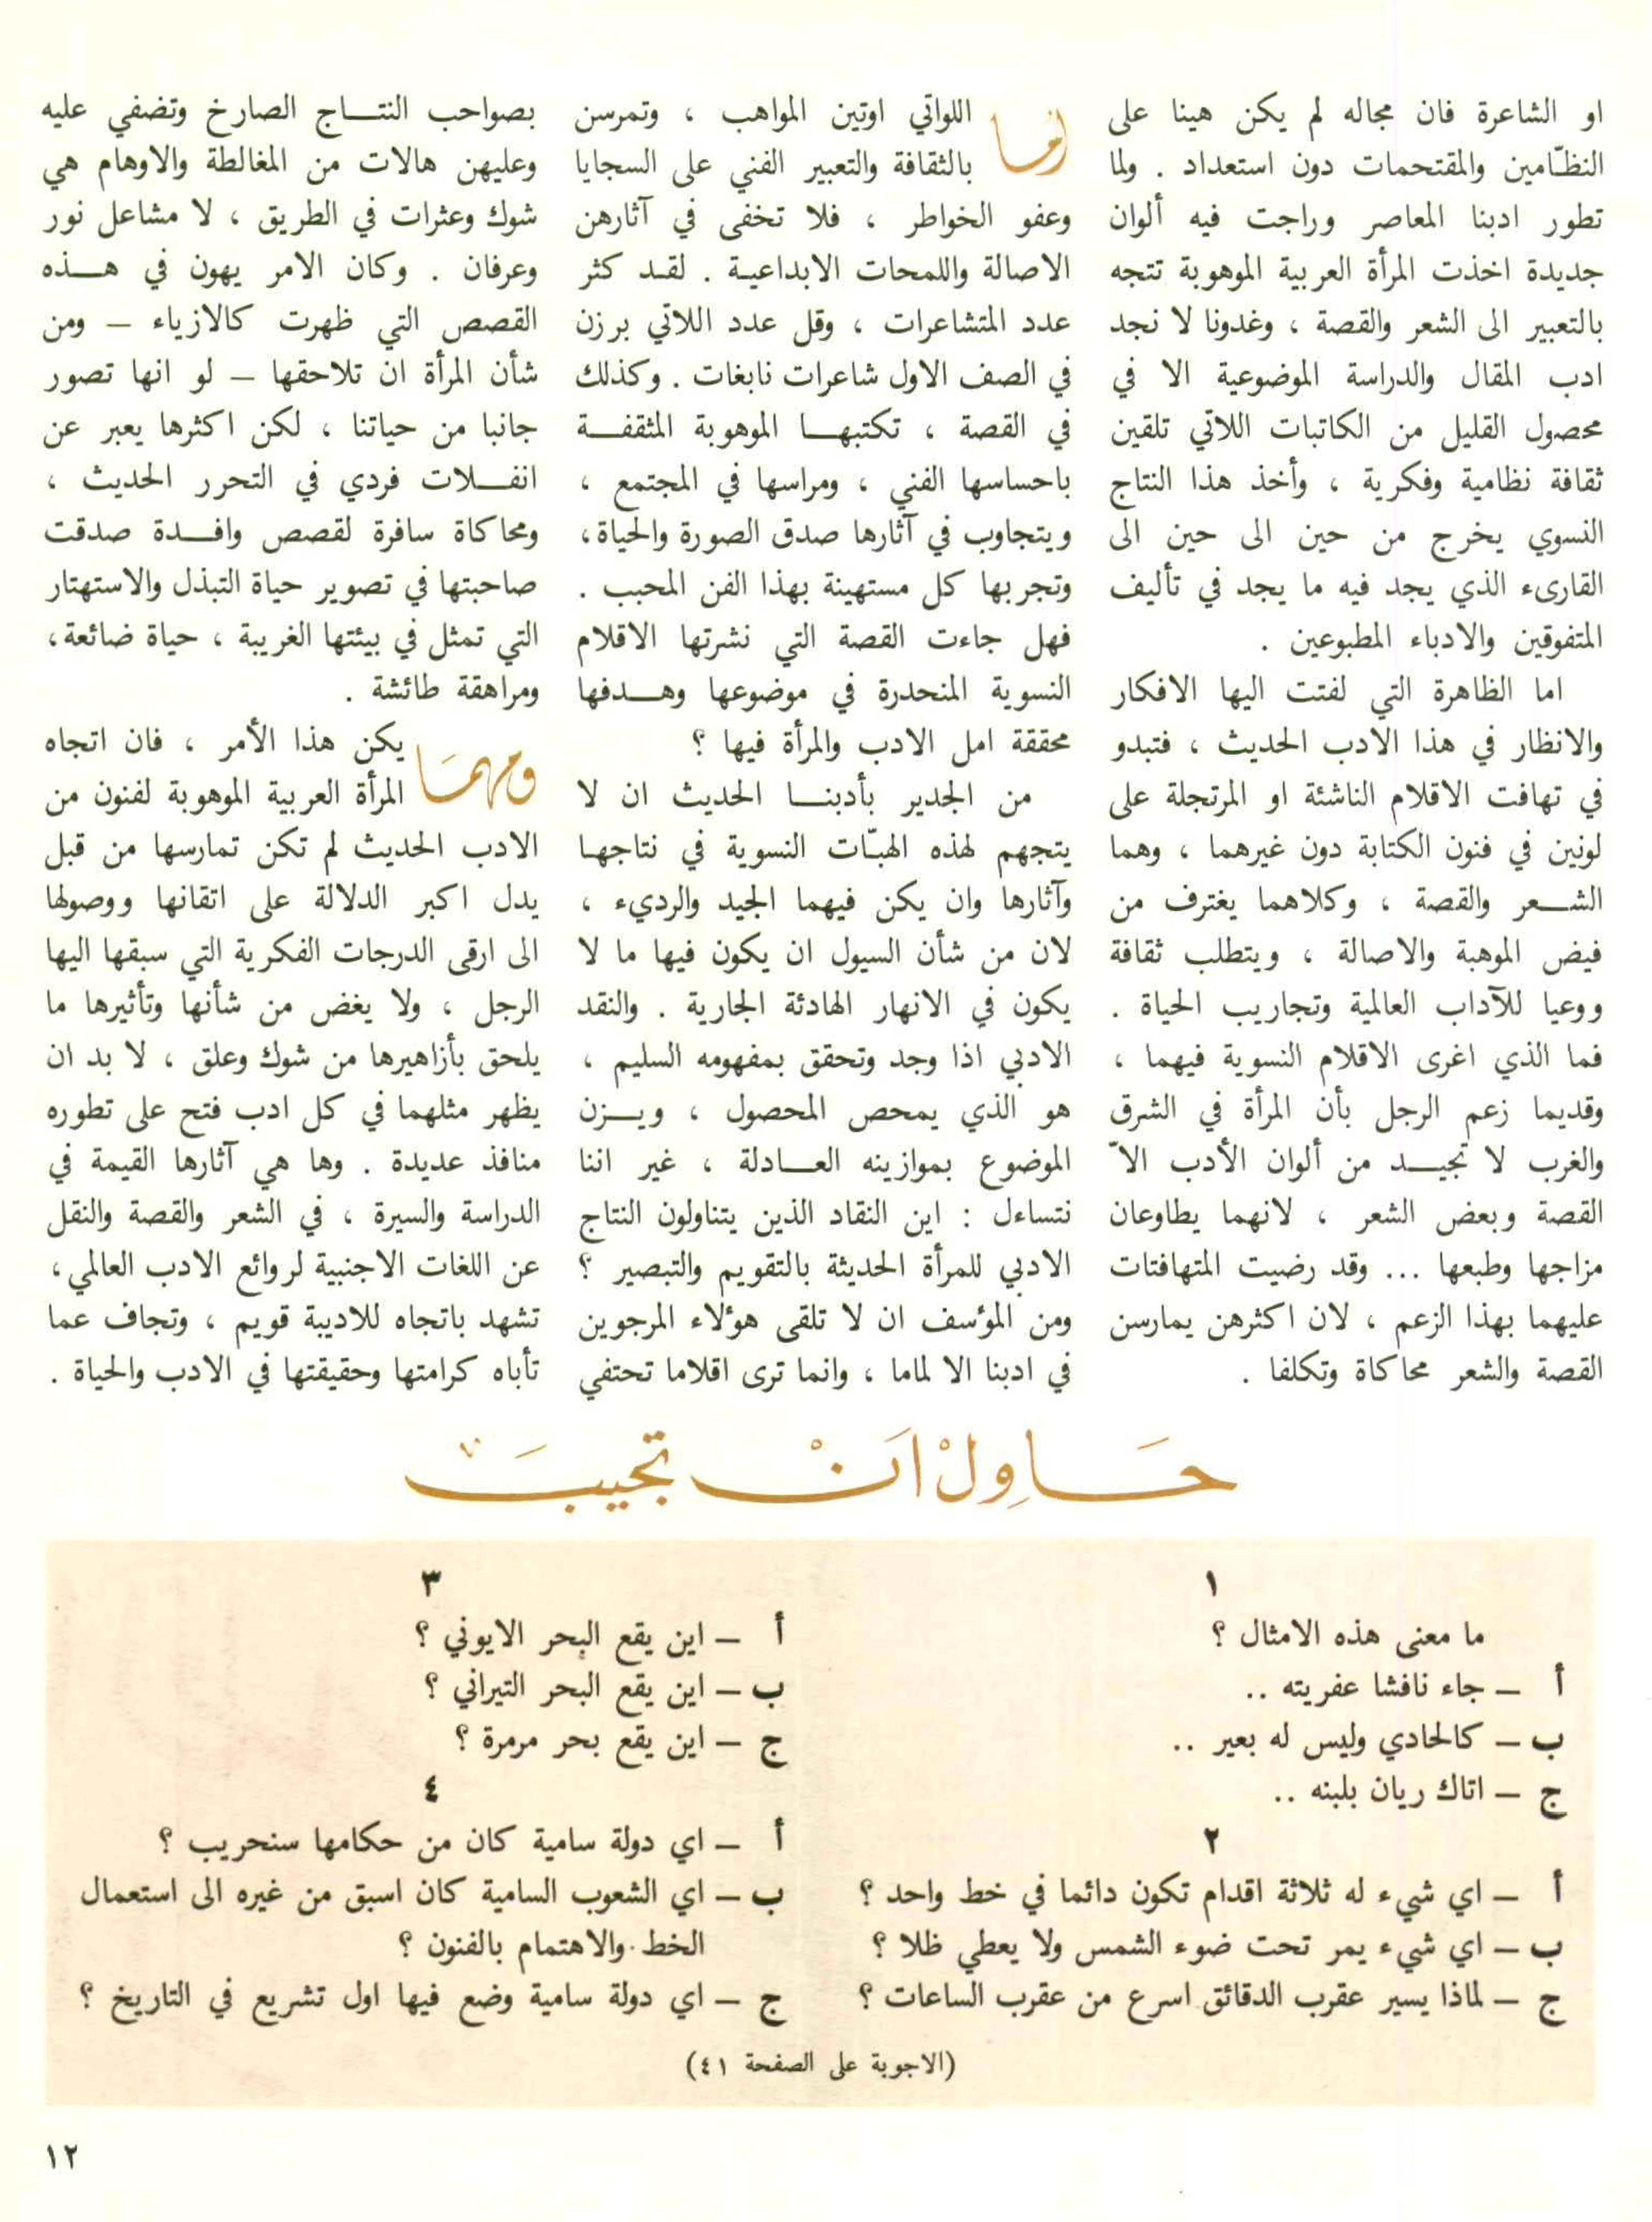 او الشاعرة فان مجاله لم يكن هينا على
النظّامين والمقتحمات دون استعداد . ولما
تطور ادبنا المعاصر وراجت فيه ألوان
جديدة اخذت المرأة العربية الموهوبة تتجه
بالتعبير الى الشعر والقصة ، وغدونا لا نجد
ادب المقال والدراسة الموضوعية الا في
محصول القليل من الكاتبات اللاتي تلقين
ثقافة نظامية وفكرية ، وأخذ هذا النتاج
النسوي يخرج من حين الى حين الى
القارىء الذي يجد فيه ما يجد في تأليف
المتفوقين والادباء المطبوعين .
اما الظاهرة التي لفتت اليها الافكار
والانظار في هذا الادب الحديث ، فتبدو
في تهافت الاقلام الناشئة او المرتجلة على
لونين في فنون الكتابة دون غيرهما ، وهما
الشعر والقصة ، وكلاهما يغترف من
فيض الموهبة والاصالة ، ويتطلب ثقافة
ووعيا للآداب العالمية وتجاريب الحياة .
فما الذي اغرى الاقلام النسوية فيهما ،
وقديما زعم الرجل بأن المرأة في الشرق
والغرب لا تجيد من ألوان الأدب الاّ
القصة وبعض الشعر ، لانهما يطاوعان
مزاجها وطبعها ... وقد رضيت المتهافتات
عليهما بهذا الزعم ، لان اكثرهن يمارسن
القصة والشعر محاكاة وتكلفا .
اما اللواتي اوتين المواهب ، وتمرسن
بالثقافة والتعبير الفني على السجايا
وعفو الخواطر ، فلا تخفى في آثارهن
الاصالة واللمحات الابداعية . لقد كثر
عدد المتشاعرات ، وقل عدد اللاتي برزن
في الصف الاول شاعرات نابغات . وكذلك
في القصة ، تكتبها الموهوبة المثقفة
باحساسها الفني ، ومراسها في المجتمع ،
ويتجاوب في آثارها صدق الصورة والحياة ،
وتجربها كل مستهينة بهذا الفن المحبب .
فهل جاءت القصة التي نشرتها الاقلام
النسوية المنحدرة في موضوعها وهدفها
محققة امل الادب والمرأة فيها ؟
من الجدير بأدبنا الحديث ان لا
يتجهم لهذه الهبّات النسوية في نتاجها
وآثارها وان يكن فيهما الجيد والرديء ،
لان من شأن السيول ان يكون فيها ما لا
يكون في الانهار الهادئة الجارية . والنقد
الادبي اذا وجد وتحقق بمفهومه السليم ،
هو الذي يمحص المحصول ، ويزن
الموضوع بموازينه العادلة ، غير اننا
نتساءل : اين النقاد الذين يتناولون النتاج
الادبي للمرأة الحديثة بالتقويم والتبصير ؟
ومن المؤسف ان لا تلقى هؤلاء المرجوين
في ادبنا الا لماما ، وانما ترى اقلاما تحتفي
بصواحب النتاج الصارخ وتضفي عليه
وعليهن هالات من المغالطة والاوهام هي
شوك وعثرات في الطريق ، لا مشاعل نور
وعرفان . وكان الامر يهون في هذه
القصص التي ظهرت كالازياء – ومن
شأن المرأة ان تلاحقها – لو انها تصور
جانبا من حياتنا ، لكن اكثرها يعبر عن
انفلات فردي في التحرر الحديث ،
ومحاكاة سافرة لقصص وافدة صدقت
صاحبتها في تصوير حياة التبذل والاستهتار
التي تمثل في بيئتها الغريبة ، حياة ضائعة ،
ومراهقة طائشة .
ومهما يكن هذا الأمر ، فان اتجاه
المرأة العربية الموهوبة لفنون من
الادب الحديث لم تكن تمارسها من قبل
يدل اكبر الدلالة على اتقانها ووصولها
الى ارقى الدرجات الفكرية التي سبقها اليها
الرجل ، ولا يغض من شأنها وتأثيرها ما
يلحق بأزاهيرها من شوك وعلق ، لا بد ان
يظهر مثلهما في كل ادب فتح على تطوره
منافذ عديدة . وها هي آثارها القيمة في
الدراسة والسيرة ، في الشعر والقصة والنقل
عن اللغات الاجنبية لروائع الادب العالمي ،
تشهد باتجاه للاديبة قويم ، وتجاف عما
تأباه كرامتها وحقيقتها في الادب والحياة .
حَاوِلْ اَنْ تجيبَ
١
ما معنى هذه الامثال ؟
أ – جاء نافشا عفريته ..
ب – كالحادي وليس له بعير ..
ج – اتاك ريان بلبنه ..
٢
أ – اي شيء له ثلاثة اقدام تكون دائما في خط واحد ؟
ب – اي شيء يمر تحت ضوء الشمس ولا يعطي ظلا ؟
ج – لماذا يسير عقرب الدقائق اسرع من عقرب الساعات ؟
٣
أ – اين يقع البحر الايوني ؟
ب – اين يقع البحر التيراني ؟
ج – اين يقع بحر مرمرة ؟
٤
أ – اي دولة سامية كان من حكامها سنحريب ؟
ب – اي الشعوب السامية كان اسبق من غيره الى استعمال
الخط والاهتمام بالفنون ؟
ج – اي دولة سامية وضع فيها اول تشريع في التاريخ ؟
(الاجوبة على الصفحة ٤١)
١٢